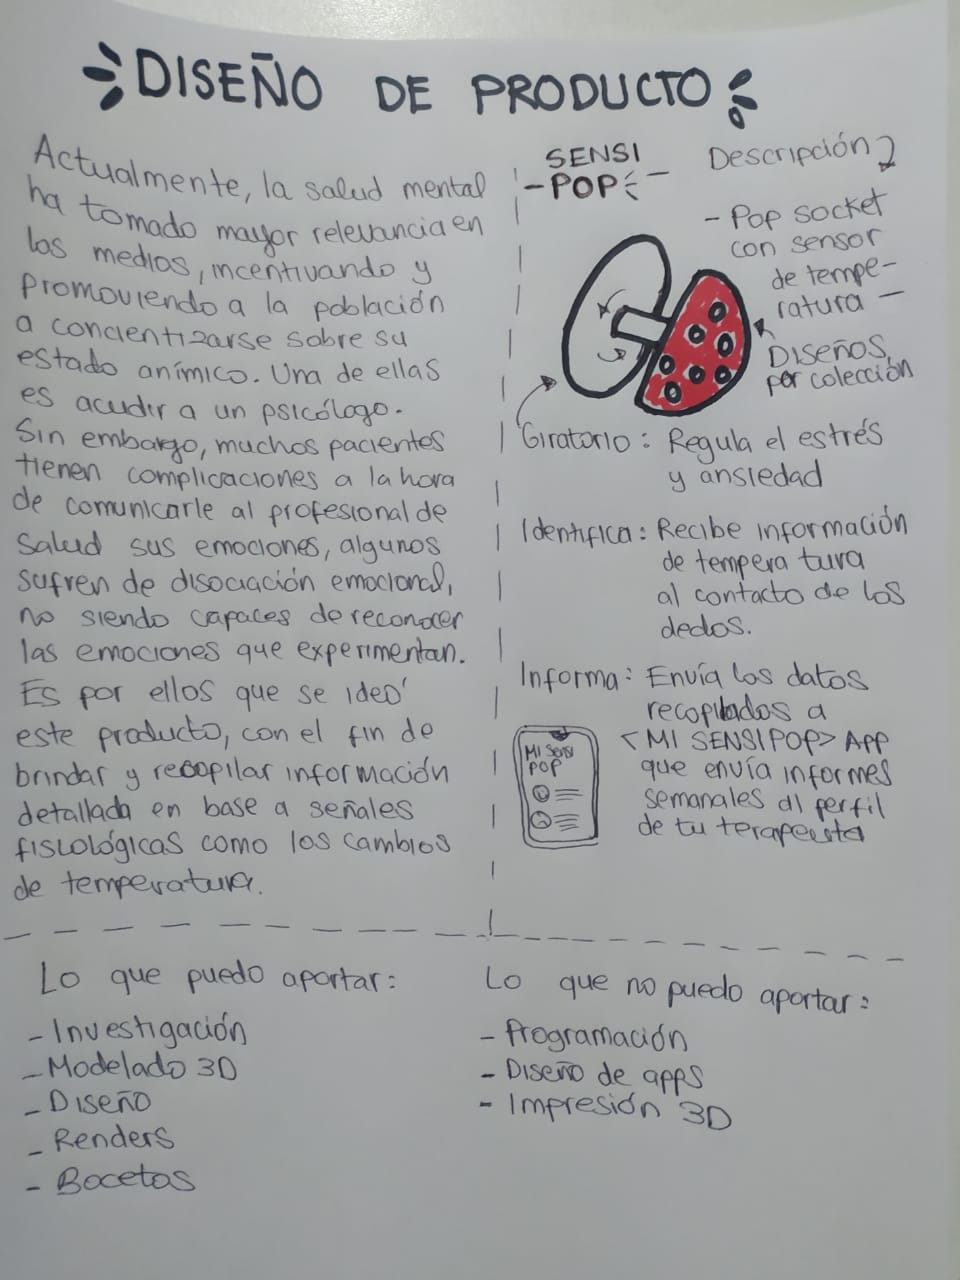 DISEÑO DE PRODUCTO
Actualmente, la salud mental
ha tomado mayor relevancia en
los medios, incentivando y
promoviendo a la población
a concientizarse sobre su
estado anímico. Una de ellas
es acudir a un psicólogo.
Sin embargo, muchos pacientes
tienen complicaciones a la hora
de comunicarle al profesional de
salud sus emociones, algunos
sufren de disociación emocional,
no siendo capaces de reconocer
las emociones que experimentan.
Es por ellos que se ideó
este producto, con el fin de
brindar y recopilar información
detallada en base a señales
fisiológicas como los cambios
de temperatura.
SENSI
-POP-
Descripción
- Pop socket
con sensor
de tempe-
ratura -
Diseños
por colección
Giratorio: Regula el estrés
y ansiedad
Identifica: Recibe información
de tempera tura
al contacto de los
dedos.
Informa: Envía los datos
recopilados a
<MI SENSIPOP> App
que envía informes
semanales al perfil
de tu terapeuta
MI SENSI
POP
Lo que puedo aportar:
- Investigación
- Modelado 3D
- Diseño
- Renders
- Bocetos
Lo que no puedo aportar:
- Programación
- Diseño de apps
- Impresión 3D